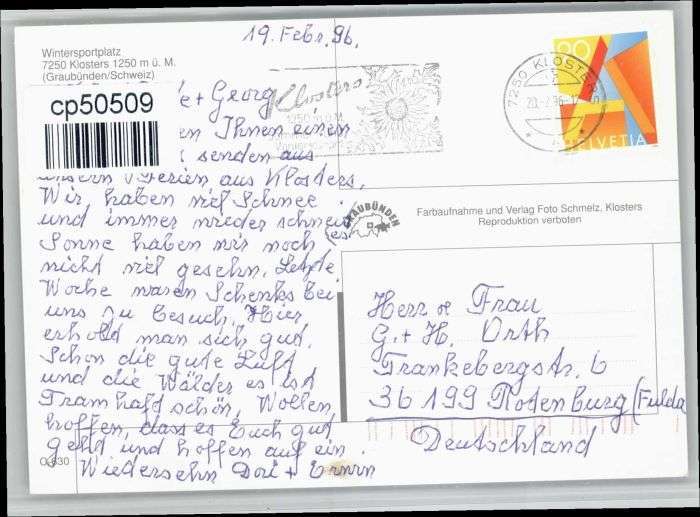 19. Febr. 96.
Wintersportplatz
7250 Klosters 1250 m ü. M.
(Graubünden/Schweiz)
cp50509
e + Georg
en Ihnen einen
senden aus
unsern Ferien aus Klosters.
Wir haben viel Schnee
und immer wieder schneit
es
Sonne haben wir noch
nicht viel gesehn. Letzte
Woche waren Schenks bei
uns zu Besuch. Hier
erholt man sich gut.
Schon die gute Luft
und die Wälder es ist
Tramhaft schön. Wollen
hoffen, dass es Euch gut
geht und hoffen auf ein
Wiedersehn Dori + Erwin
O 630
Klosters
1250 m ü.M.
7250 KLOSTERS
20.-2.96-12
90
A
HELVETIA
GRAUBÜNDEN
Farbaufnahme und Verlag Foto Schmelz, Klosters
Reproduktion verboten
Herr & Frau
G. + H. Orth
Frankebergstr. 6
36199 Rotenburg (Fulda
Deutschland